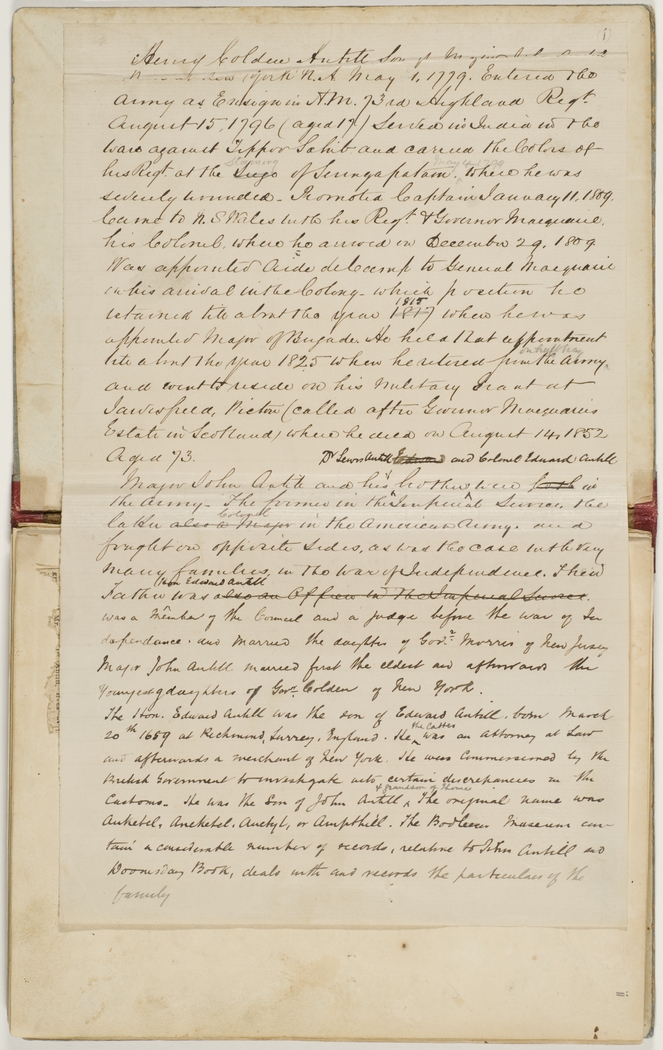 (1)
Henry Colden Antill Son of Major
New York N.A May 1, 1779. Entered the
army as Ensign in H.M. 73rd Highland Regt.
August 15, 1796 (aged 17) Served in India in the
wars against Tippoo Sahib and carried the Colors of
storming May 4 1799
his Regt. at the Siege of Seringapatam, where he was
severely wounded - Promoted Captain January 11, 1809.
Came to N. S Wales with his Regt. & Governor Macquarie,
his Colonel, where he arrived on December 29, 1809.
Was appointed Aide de Camp to General Macquarie
on his arrival in the Colony - which position he
1815
retained till about the year 1817 when he was
appointed Major of Brigade. He held that appointment
on half pay
till about the year 1825 when he retired from the Army
and went to reside on his Military Grant at
Jarvisfield, Picton (called after Governor Macquaries
Estate in Scotland) where he died on August 14, 1852
Aged 73.
Dr Lewis Antill Edward and Colonel Edward Antill
Major John Antill and his brother were both in
the Army - The former in the Imperial Service, the
Colonel
latter also a Major in the American Army. and
fought on opposite sides, as was the case with very
many families, in the War of Independence. Their
Hon Edward Antill
Father was also an Officer in the Imperial Service.
was a Member of the Council and a judge before the war of In
dependance. and married the daughter of Govr. Morris of New Jersey
Major John Antill married first the eldest and afterwards the
youngest daughters of Govr. Colden of New York.
The Hon. Edward Antill was the son of Edward Antill, born March
the latter
20th 1659 at Richmond, Surrey, England. He was an Attorney at Law
and afterwards a merchant of New York. He was Commissioned by the
British Government to investigate into certain discrepancies in the
& grandson of Thomas
Customs - He was the Son of John Antill, The original name was
Anketel, Anchetel, Anctyl, or Ampthill. The Bodleian Museum con-
tain a considerable number of records, relative to John Antill and
Doomsday Book, deals with and records the particulars of the
family